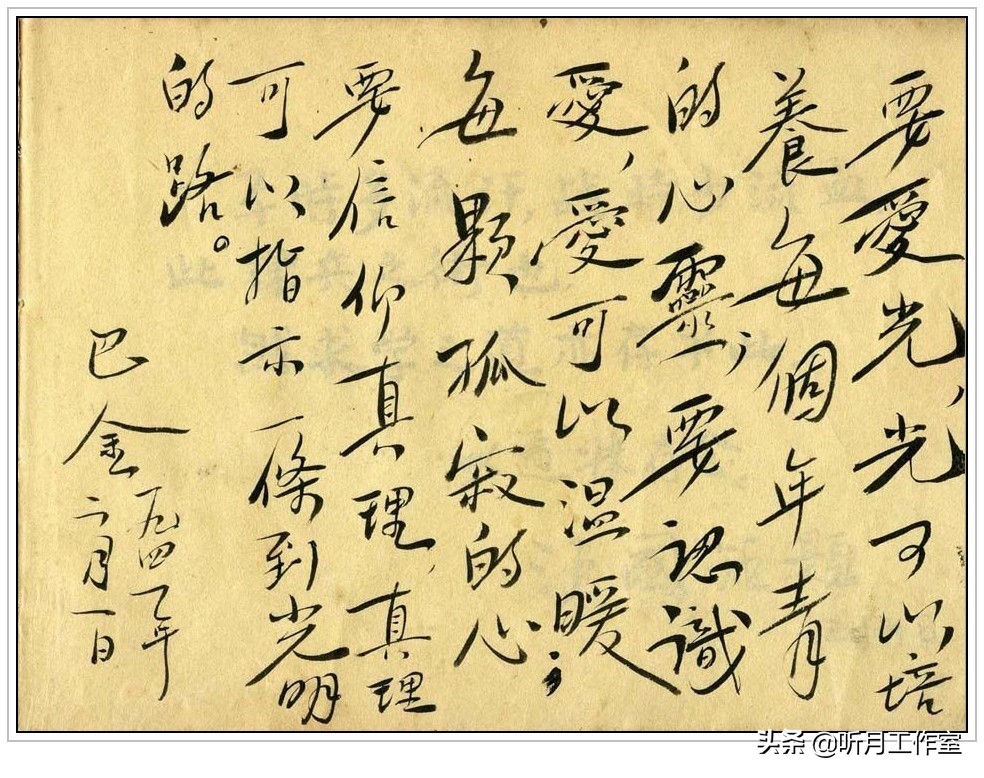 要愛光,光可以培
養每個年青
的心靈,要認識
愛,愛可以温暖
每顆孤寂的心;
要信仰真理,真理
可以指示一條到光明
的路。
巴金
一九四一年
二月一日
头条 @听月工作室